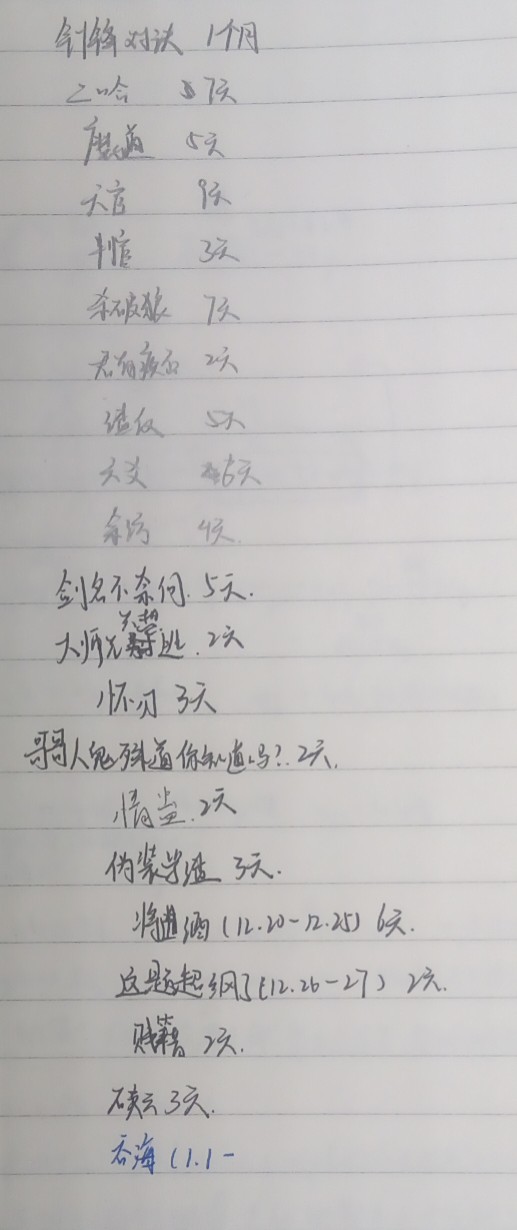 剑锋对决 1个月
二哈 7天
魔道 5天
天官 9天
判官 3天
杀破狼 7天
君有疾否 2天
渣反 5天
六爻 6天
余污 4天.
剑名不奈何. 5天.
大师兄不想逃. 2天
怀刃 3天
哥哥人鬼殊道你知道吗?. 2天.
情蛊. 2天
伪装学渣 3天.
将进酒 (12.20-12.25) 6天.
这题超纲了(12.26-27) 2天.
贱籍 2天.
破云 3天.
吞海 (1.1-